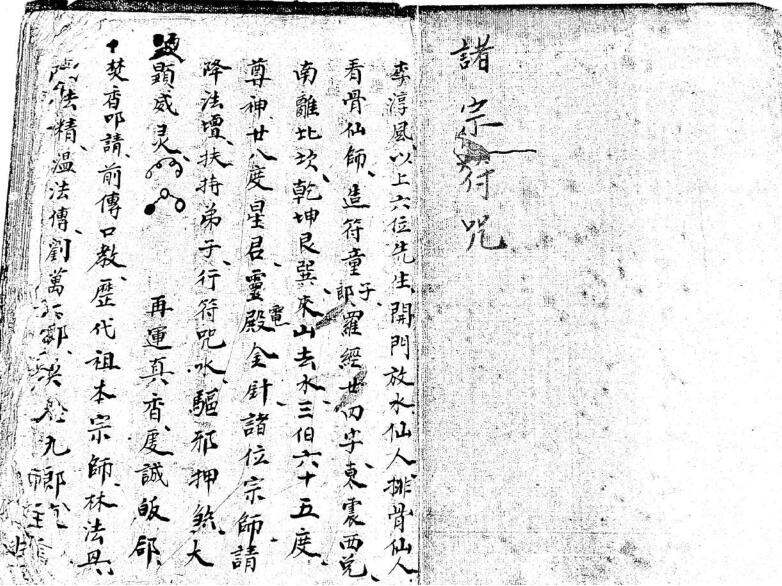 諸宗符咒
李淳風以上六位先生開門放水仙人排骨仙人
看骨仙師造符童子郎羅經廿四字東震西兌
南離北坎乾坤艮巽來山去水三伯六十五度
尊神廿八度星君靈殿金針諸位宗師請
降法壇扶持弟子行符咒水驅邪押煞大
顯威灵
再運真香虔誠皈
十焚香叩請前傳口教歷代祖本宗師林法興
法精温法傳劉萬 九郎